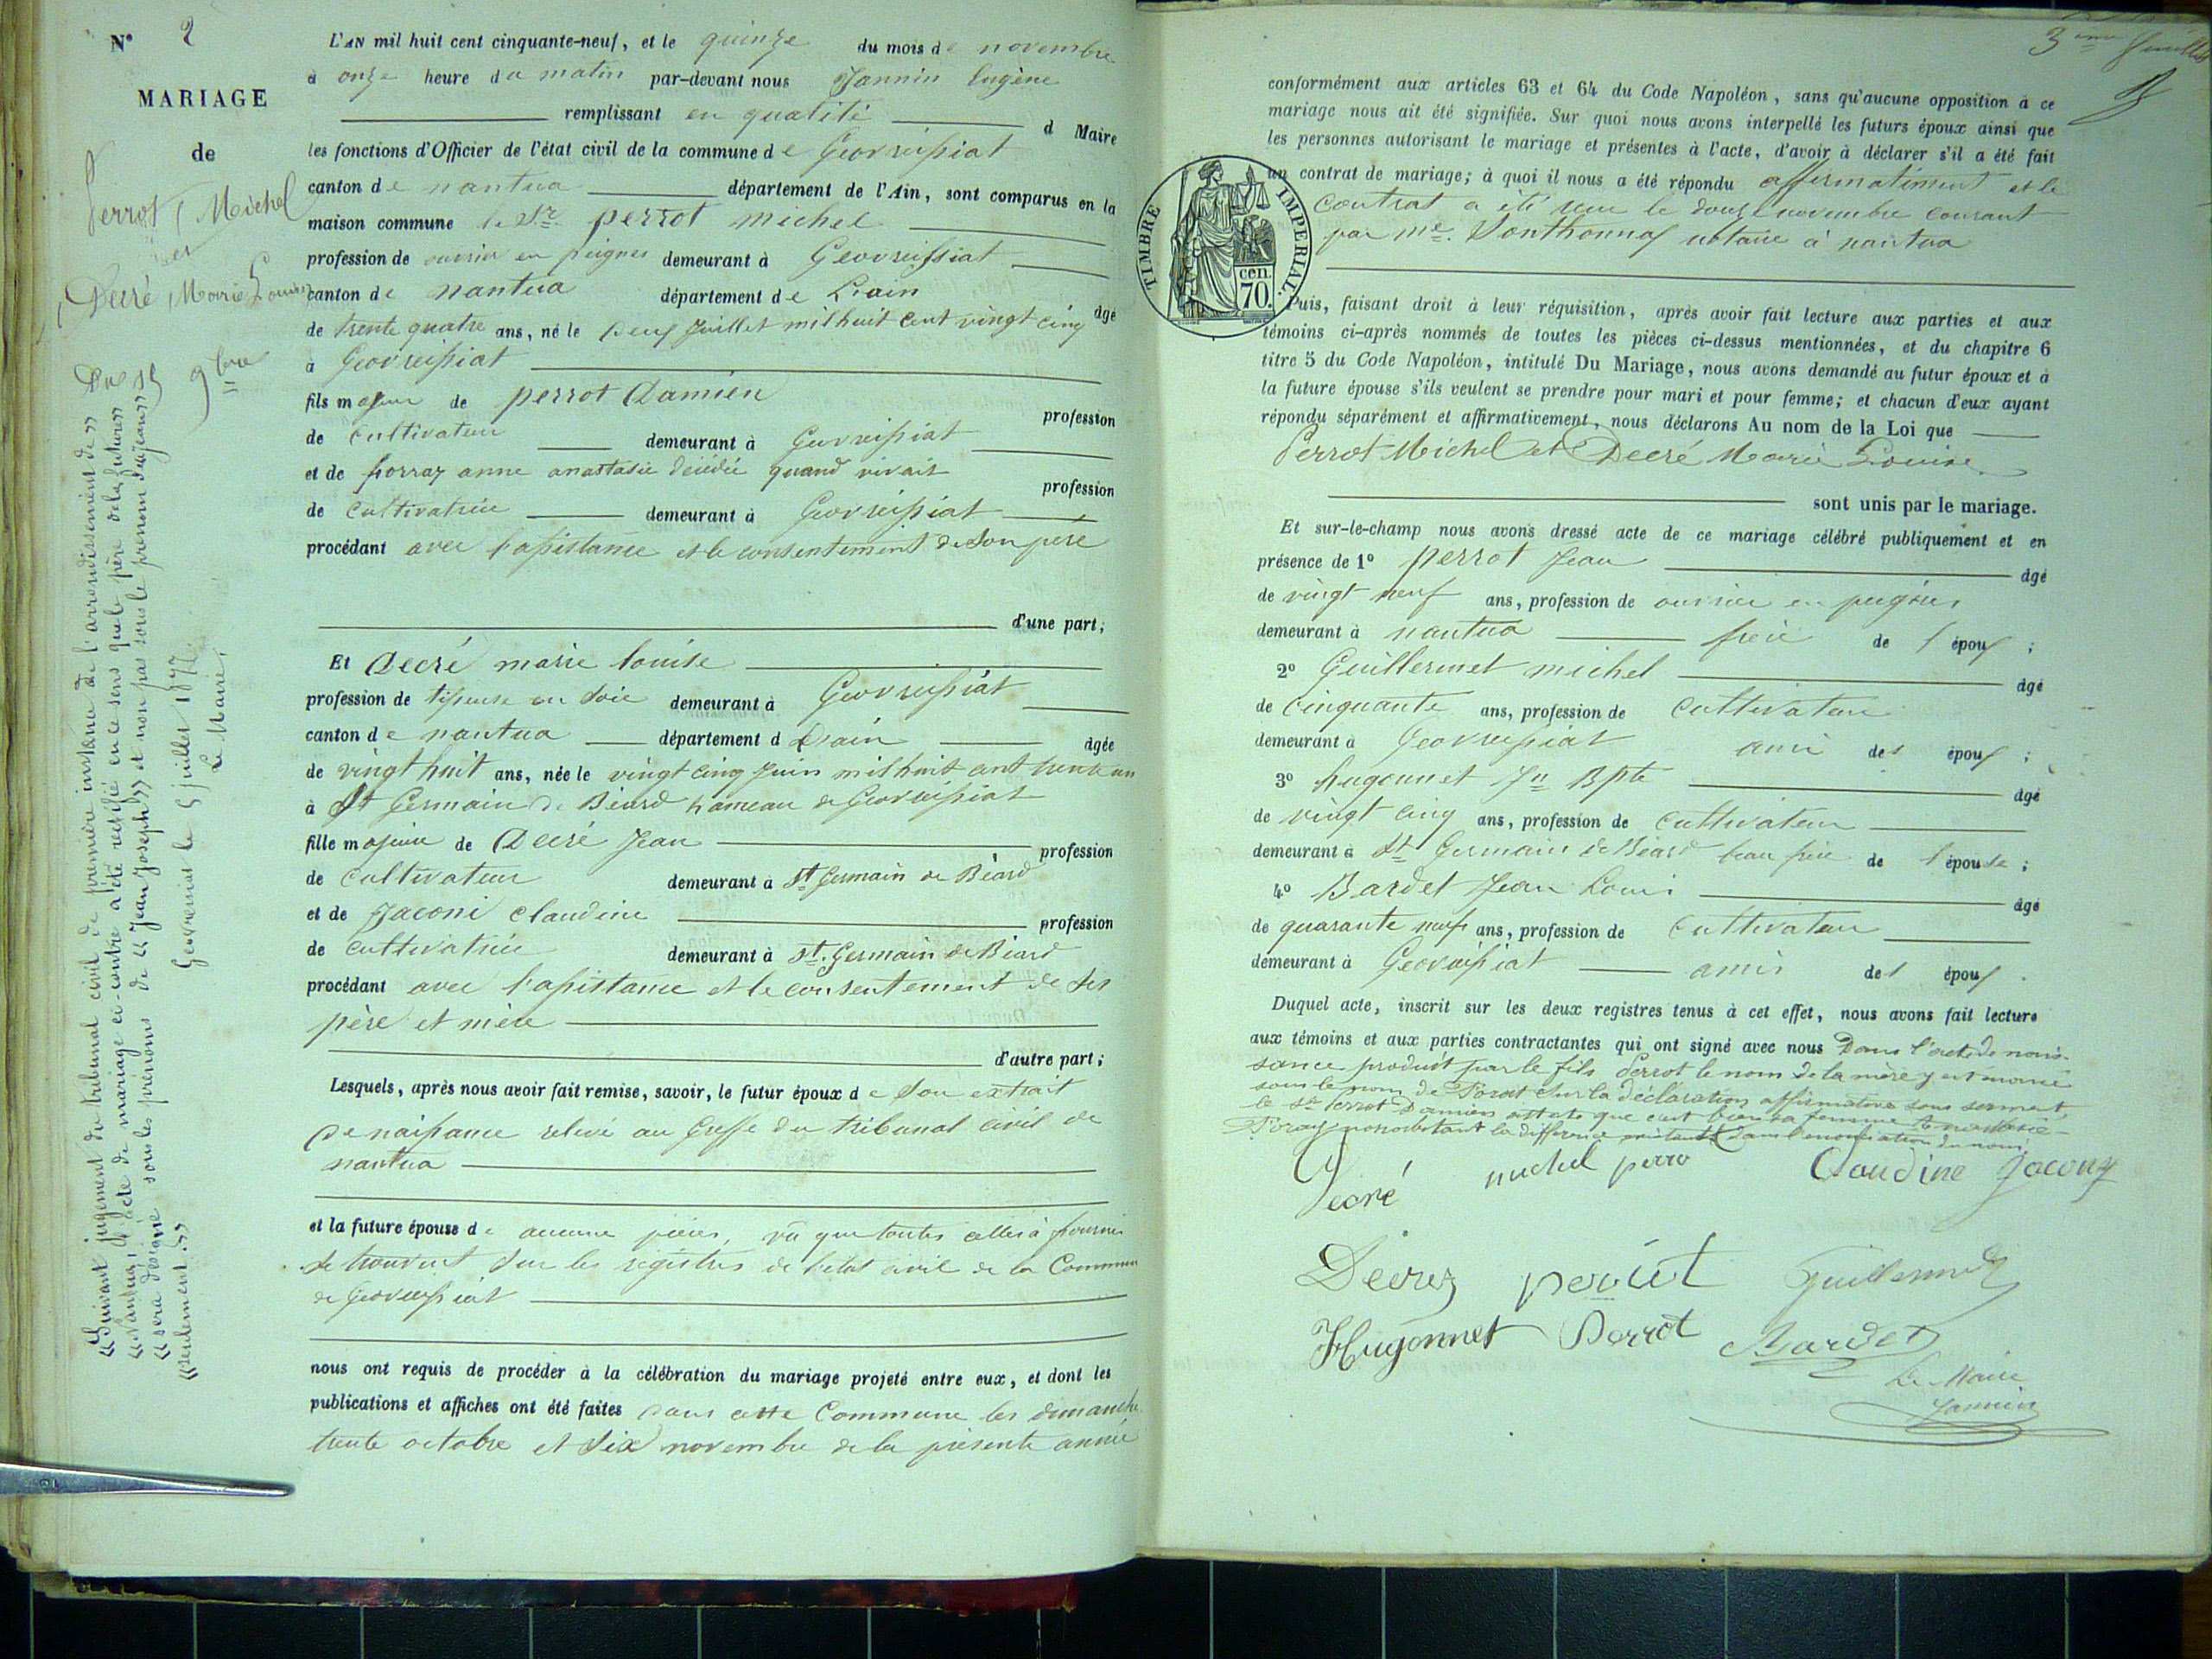 N° 2
MARIAGE
de
Perrot Michel
et
Decré Marie Louise
Du 15 9bre
« Suivant jugement du tribunal civil de première instance de l'arrondissement de »
« Nantua, l'acte de mariage ci-contre a été rectifié en ce sens que le père de la future »
« sera désigné sous les prénoms de « Jean Joseph » et non pas sous le prénom de « Jean »
« seulement. »
Geovreissiat le 5 juillet 1877.
Le Maire,
L'AN mil huit cent cinquante-neuf, et le quinze du mois de novembre
à onze heure du matin par-devant nous Jannin Eugène
remplissant en qualité d Maire
les fonctions d'Officier de l'état civil de la commune de Geovreissiat
canton de nantua département de l'Ain, sont comparus en la
maison commune le Sr perrot michel
profession de ouvrier en peignes demeurant à Geovreissiat
canton de nantua département de L'ain âgé
de trente quatre ans, né le neuf Juillet mil huit cent vingt cinq
à Geovreissiat
fils majeur de perrot Damien profession
de cultivateur demeurant à Geovreissiat
et de porraz anne anastasie décédée quand vivait profession
de cultivatrice demeurant à Geovreissiat
procédant avec l'assistance et le consentement de son père
d'une part;
Et Decré marie louise
profession de tisseuse en soie demeurant à Geovreissiat
canton de nantua département d L'ain âgée
de vingt huit ans, née le vingt cinq Juin mil huit cent trente un
à St Germain de Béard hameau de Geovreissiat
fille majeure de Decré Jean profession
de cultivateur demeurant à St Germain de Béard
et de Jaconi claudine profession
de cultivatrice demeurant à St. Germain de Béard
procédant avec l'assistance et le consentement de ses
père et mère
d'autre part;
Lesquels, après nous avoir fait remise, savoir, le futur époux de son extrait
de naissance relevé au Greffe du tribunal civil de
nantua
et la future épouse de aucune pièces, vû que toutes celles à fournir
se trouvent sur les registres de l'état civil de la Commune
de Geovreissiat
nous ont requis de procéder à la célébration du mariage projeté entre eux, et dont les
publications et affiches ont été faites dans cette Commune les dimanche
trente octobre et six novembre de la présente année
3ème feuillet
conformément aux articles 63 et 64 du Code Napoléon, sans qu'aucune opposition à ce
mariage nous ait été signifiée. Sur quoi nous avons interpellé les futurs époux ainsi que
les personnes autorisant le mariage et présentes à l'acte, d'avoir à déclarer s'il a été fait
un contrat de mariage; à quoi il nous a été répondu affirmatiment et le
contrat a été reçu le douze novembre courant
par me. Vonthonnaf notaire à nantua
TIMBRE IMPERIAL.
cen.
70.
Puis, faisant droit à leur réquisition, après avoir fait lecture aux parties et aux
témoins ci-après nommés de toutes les pièces ci-dessus mentionnées, et du chapitre 6
titre 5 du Code Napoléon, intitulé Du Mariage, nous avons demandé au futur époux et à
la future épouse s'ils veulent se prendre pour mari et pour femme; et chacun d'eux ayant
répondu séparément et affirmativement, nous déclarons Au nom de la Loi que
Perrot Michel et Decré Marie Louise
sont unis par le mariage.
Et sur-le-champ nous avons dressé acte de ce mariage célébré publiquement et en
présence de 1° perrot Jean âgé
de vingt neuf ans, profession de ouvrier en peignes
demeurant à nantua frère de l'époux;
2° Guillermet michel âgé
de cinquante ans, profession de cultivateur
demeurant à Geovreissiat ami des époux;
3° hugonnet Jn Bpte âgé
de vingt cinq ans, profession de cultivateur
demeurant à St Germain de Béard beau frère de l'épouse;
4° Bardet Jean Louis âgé
de quarante neuf ans, profession de cultivateur
demeurant à Geovreissiat amis des époux.
Duquel acte, inscrit sur les deux registres tenus à cet effet, nous avons fait lecture
aux témoins et aux parties contractantes qui ont signé avec nous Dans l'acte de nais-
sance produit par le fils Perrot le nom de la mère y est
sous le nom de Porat sur la déclaration affirmative sous serment
le Sr Perrot Damien atteste que c'est bien sa femme Anastasie
Poraz nonobstant la différence existante dans l'énonciation du nom.
Decré michel perro Claudine Jacony
Decrez perrot Guillermet
Hugonnet Perrot Bardet
Le Maire
Jannin